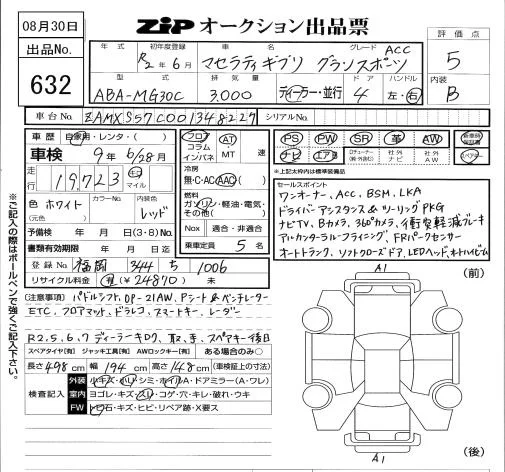 08月30日
ZiP オークション出品票
出品No.
632
年式 初年度登録 車名 グレード 評価点
R2年6月 マセラティギブリ グランスポーツ ACC
5
型式 排気量 ドア ハンドル 内装
ABA-MG30C 3,000 ディーラー・並行 4 左・右 B
車台No. ZAMXS57C001348227 シリアルNo.
車歴 自家用・レンタ・( )
車検 9年6/28月
走行 19,723 キロ マイル
色 ホワイト (元色) カラーNo. 内装色 レッド
予備検 年 月 日(3・8)No.
書類有効期限 年 月 日迄
登録No. 福岡 344 ち 1006
リサイクル料金 有(¥24870) 未
フロア コラム インパネ AT・MT 速
冷房 無・C・AC・AAC
燃料 ガソリン・軽油・電気・その他( )
Nox 適合・非適合
乗車定員 5名
PS PW SR 革 AW
ナビ エアB 社外ナビ 社外AW
※上記太枠内は標準装備品
セールスポイント
ワンオーナー、ACC、BSM、LKA
ドライバーアシスタンス&ツーリングPKG
ナビTV、Bカメラ、360°カメラ、衝突軽減ブレーキ
アルカンターラルーフライニング、FRパークセンサー
オートトランク、ソフトクローズドア、LEDヘッド、オートハイビーム
(注意事項) パドルシフト、OP-21AW、Pシート&ベンチレーター
ETC、フロアマット、ドラレコ、スマートキー、レーダー
R2,5,6,7 ディーラーキロク、取、手、スペアキー後日
スペアタイヤ【有】 ジャッキ工具【有】 AWロックキー【有】 ある場合のみ○
長さ498cm 幅194cm 高さ148cm (車検証上の寸法)
検査記入
外装 小キズ・小凹・シミ・ホイルA・ドアミラー(A・ワレ)
室内 ヨゴレ・キズ・スレ・コゲ・穴・キレ・破れ・ウキ
FW トビ石・キズ・ヒビ・リペア跡・X要ス
A1
(前)
A1
(後)
※ご記入の際はボールペンで強くご記入下さい。